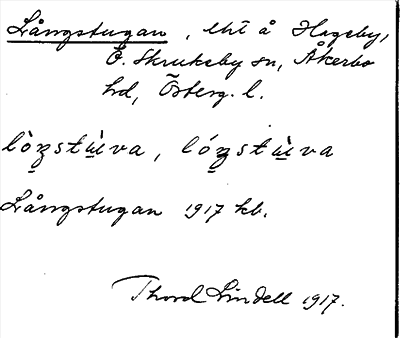 Långstugan, lht å Hageby,
Ö. Skrukeby sn, Åkerbo
hd, Österg. l.
lòʒstù̱va, lóʒstù̱va
Långstugan 1917 kb.
Thord Lindell 1917.